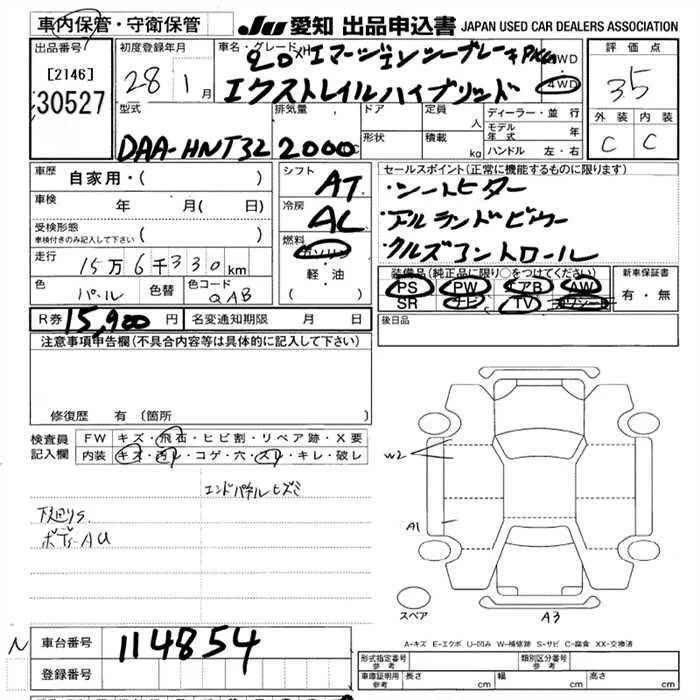 車内保管・守衛保管
JU 愛知 出品申込書 JAPAN USED CAR DEALERS ASSOCIATION
出品番号 初度登録年月 車名・グレード 評価点
[2146]
30527
28 1月
2.0X エマージェンシーブレーキPKG
エクストレイルハイブリッド
2WD
4WD
3.5
外装 内装
C C
型式 排気量 ドア 定員 人 ディーラー・並行
DAA-HNT32 2000cc
形状 積載 kg
モデル年式 年
ハンドル 左・右
車歴 自家用・( )
シフト AT
セールスポイント(正常に機能するものに限ります)
・シートヒーター
・アルランドビュー
・クルズコントロール
車検 年 月( 日)
冷房 AC
受検形態
車検付きのみ記入して下さい ( )
燃料 ガソリン
軽・油
走行 15万6千330km
色 パール 色替 色コード QAB
装備品(純正品に限り○をつけてください) 新車保証書
PS PW エアB AW
SR ナビ TV 革シート
有・無
R券 15,900円 名変通知期限 月 日
後日品
注意事項申告欄(不具合内容等は具体的に記入して下さい)
修復歴 有(箇所 )
検査員記入欄
FW キズ・飛石・ヒビ割・リペア跡・X要
内装 キズ・汚レ・コゲ・穴・スレ・キレ・破レ
エンドパネルヒズミ
下廻りS
ボデーAU
W2
A1
スペア
A3
A-キズ E-エクボ U-凹み W-補修跡 S-サビ C-腐食 XX-交換済
N
車台番号 114854
登録番号
形式指定番号 参考 類別区分番号 参考
車庫証明用 参考 長さ cm 幅 cm 高さ cm